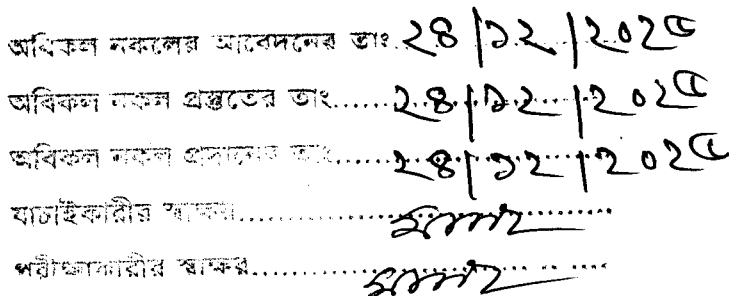 অবিকল নকলের আবেদনের তাং ২৪/১২/২০২৫
অবিকল নকল প্রস্তুতের তাং..... ২৪/১২/২০২৫
অবিকল নকল প্রদানের তাং..... ২৪/১২/২০২৫
যাচাইকারীর স্বাক্ষর
পরীক্ষাকারীর স্বাক্ষর